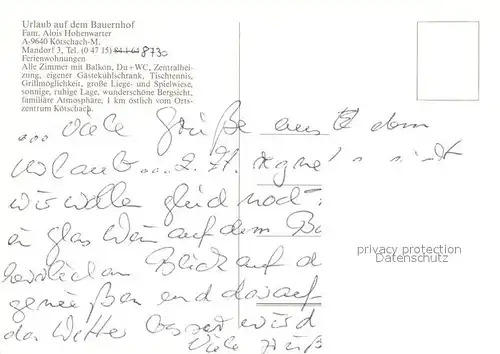 Urlaub auf dem Bauernhof
Fam. Alois Hohenwarter
A-9640 Kötschach-M.
Mandorf 3, Tel. (0 47 15) 84 1 64 8730
Ferienwohnungen
Alle Zimmer mit Balkon, Du+WC, Zentralhei-
zung, eigener Gästekühlschrank, Tischtennis,
Grillmöglichkeit, große Liege- und Spielwiese,
sonnige, ruhige Lage, wunderschöne Bergsicht,
familiäre Atmosphäre, 1 km östlich vom Orts-
zentrum Kötschach.
... viele Grüße aus dem
Urlaub ... z. Zt. regnet's
wir wollen
ein Glas Wein auf dem
herrlichen Blick auf d
genießen und darauf
das Wetter besser wird
Viele
privacy protection
Datenschutz